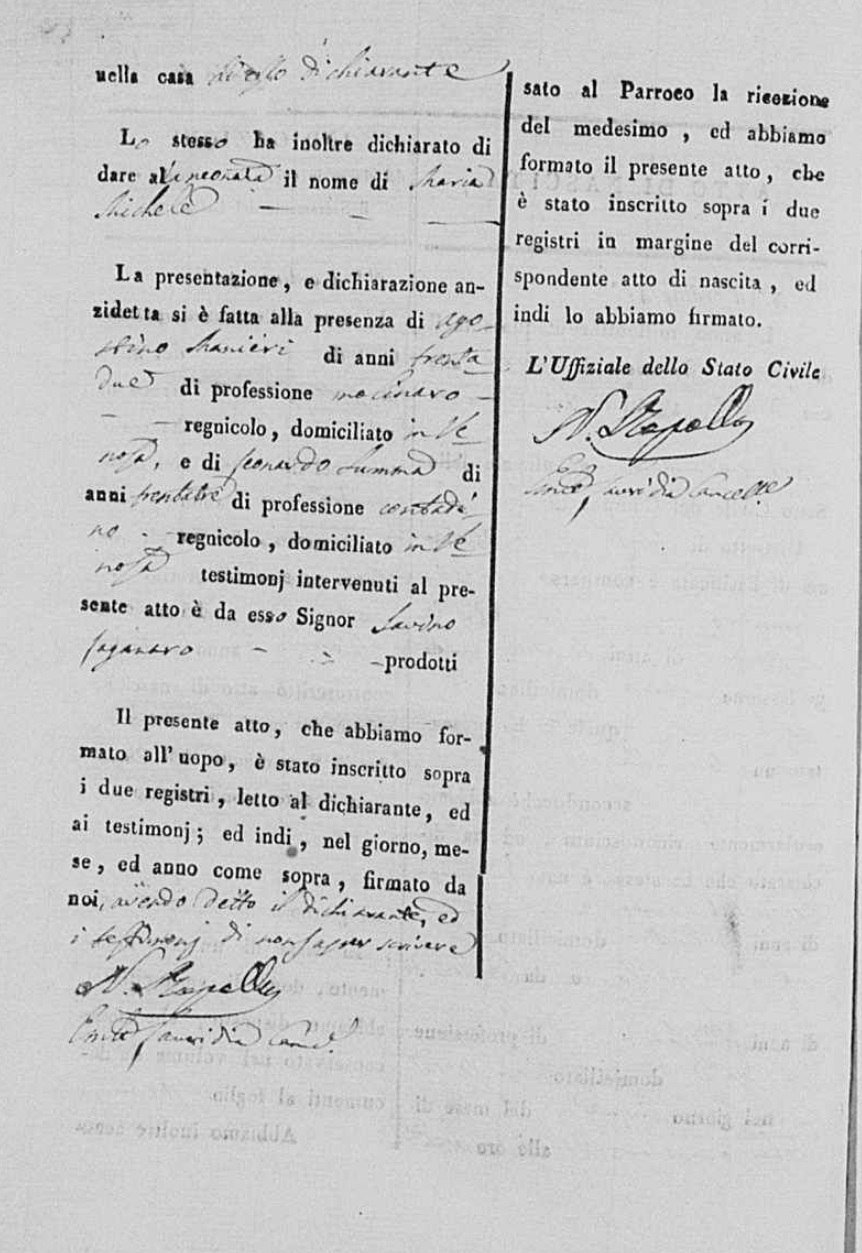 nella casa di esso dichiarante
Lo stesso ha inoltre dichiarato di
dare alla neonata il nome di Maria
Michela
La presentazione, e dichiarazione an-
zidetta si è fatta alla presenza di Ago-
stino Ranieri di anni trenta
due di professione molinaro
regnicolo, domiciliato in Ve
nosa, e di Leonardo Summa di
anni trentatre di professione contadi-
no regnicolo, domiciliato in Ve
nosa testimonj intervenuti al pre-
sente atto è da esso Signor Savino
prodotti
Il presente atto, che abbiamo for-
mato all'uopo, è stato inscritto sopra
i due registri, letto al dichiarante, ed
ai testimonj; ed indi, nel giorno, me-
se, ed anno come sopra, firmato da
noi, avendo detto il dichiarante, ed
i testimonj di non saper scrivere
N. Rapolla
sato al Parroco la ricezione
del medesimo, ed abbiamo
formato il presente atto, che
è stato inscritto sopra i due
registri in margine del corri-
spondente atto di nascita, ed
indi lo abbiamo firmato.
L'Uffiziale dello Stato Civile
N. Rapolla